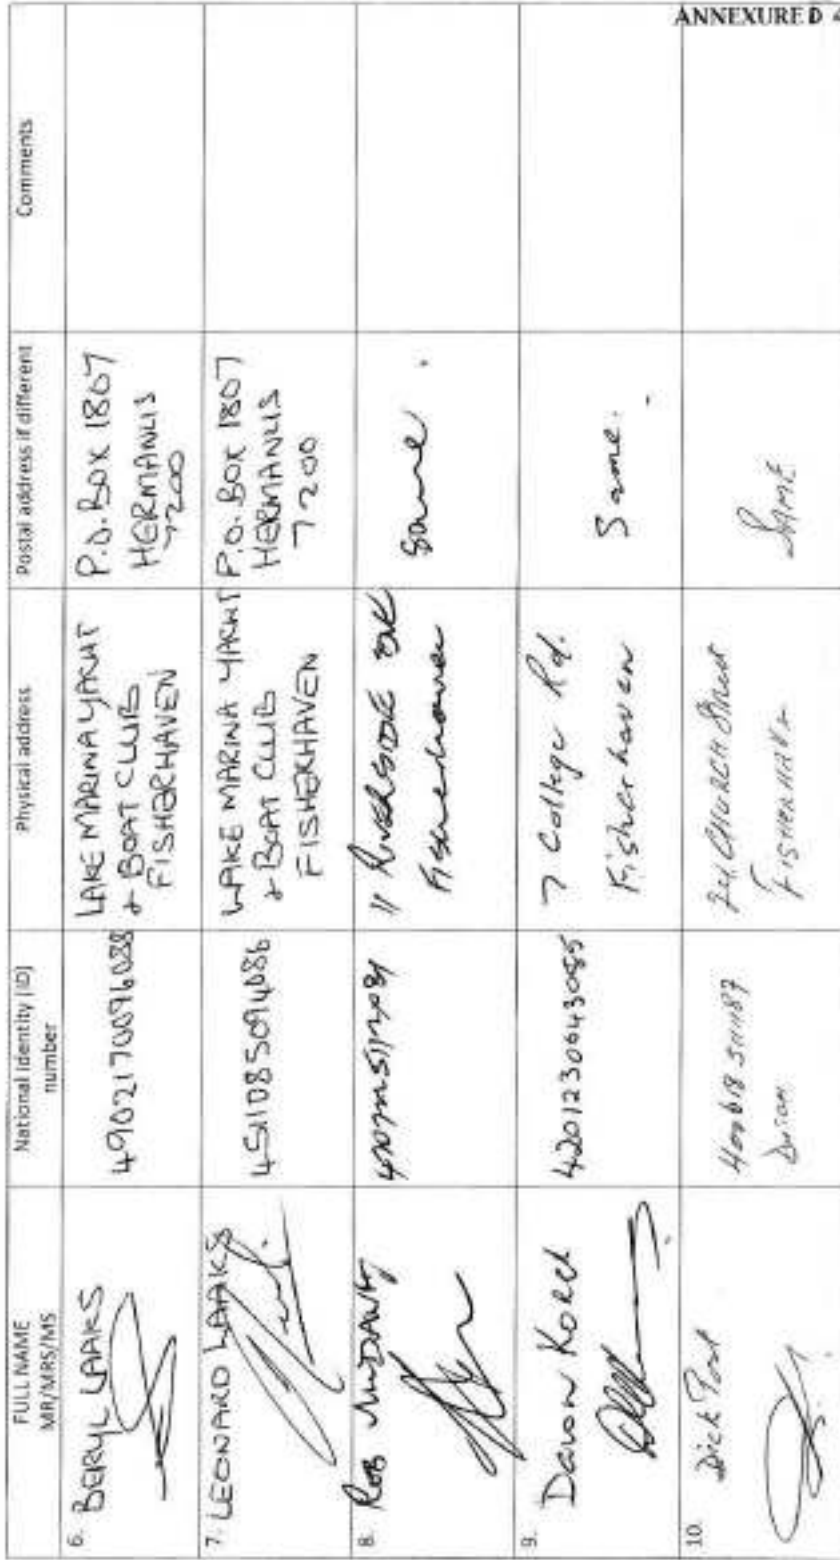 ANNEXURE D 4
FULL NAME
MR/MRS/MS
National Identity (ID)
number
Physical address
Postal address if different
Comments
6. BERYL LAAKS
4902170096088
LAKE MARINA YACHT
& BOAT CLUB
FISHERHAVEN
P.O. BOX 1807
HERMANUS
7200
7. LEONARD LAAKS
4511085094086
LAKE MARINA YACHT
& BOAT CLUB
FISHERHAVEN
P.O. BOX 1807
HERMANUS
7200
8. Rob
11 RIVERSIDE DVE
Fisherhaven
Same.
9.
7 College Rd.
Fisherhaven
Same.
10. Dick Post
CHURCH Street
FISHERHAVEN
SAME